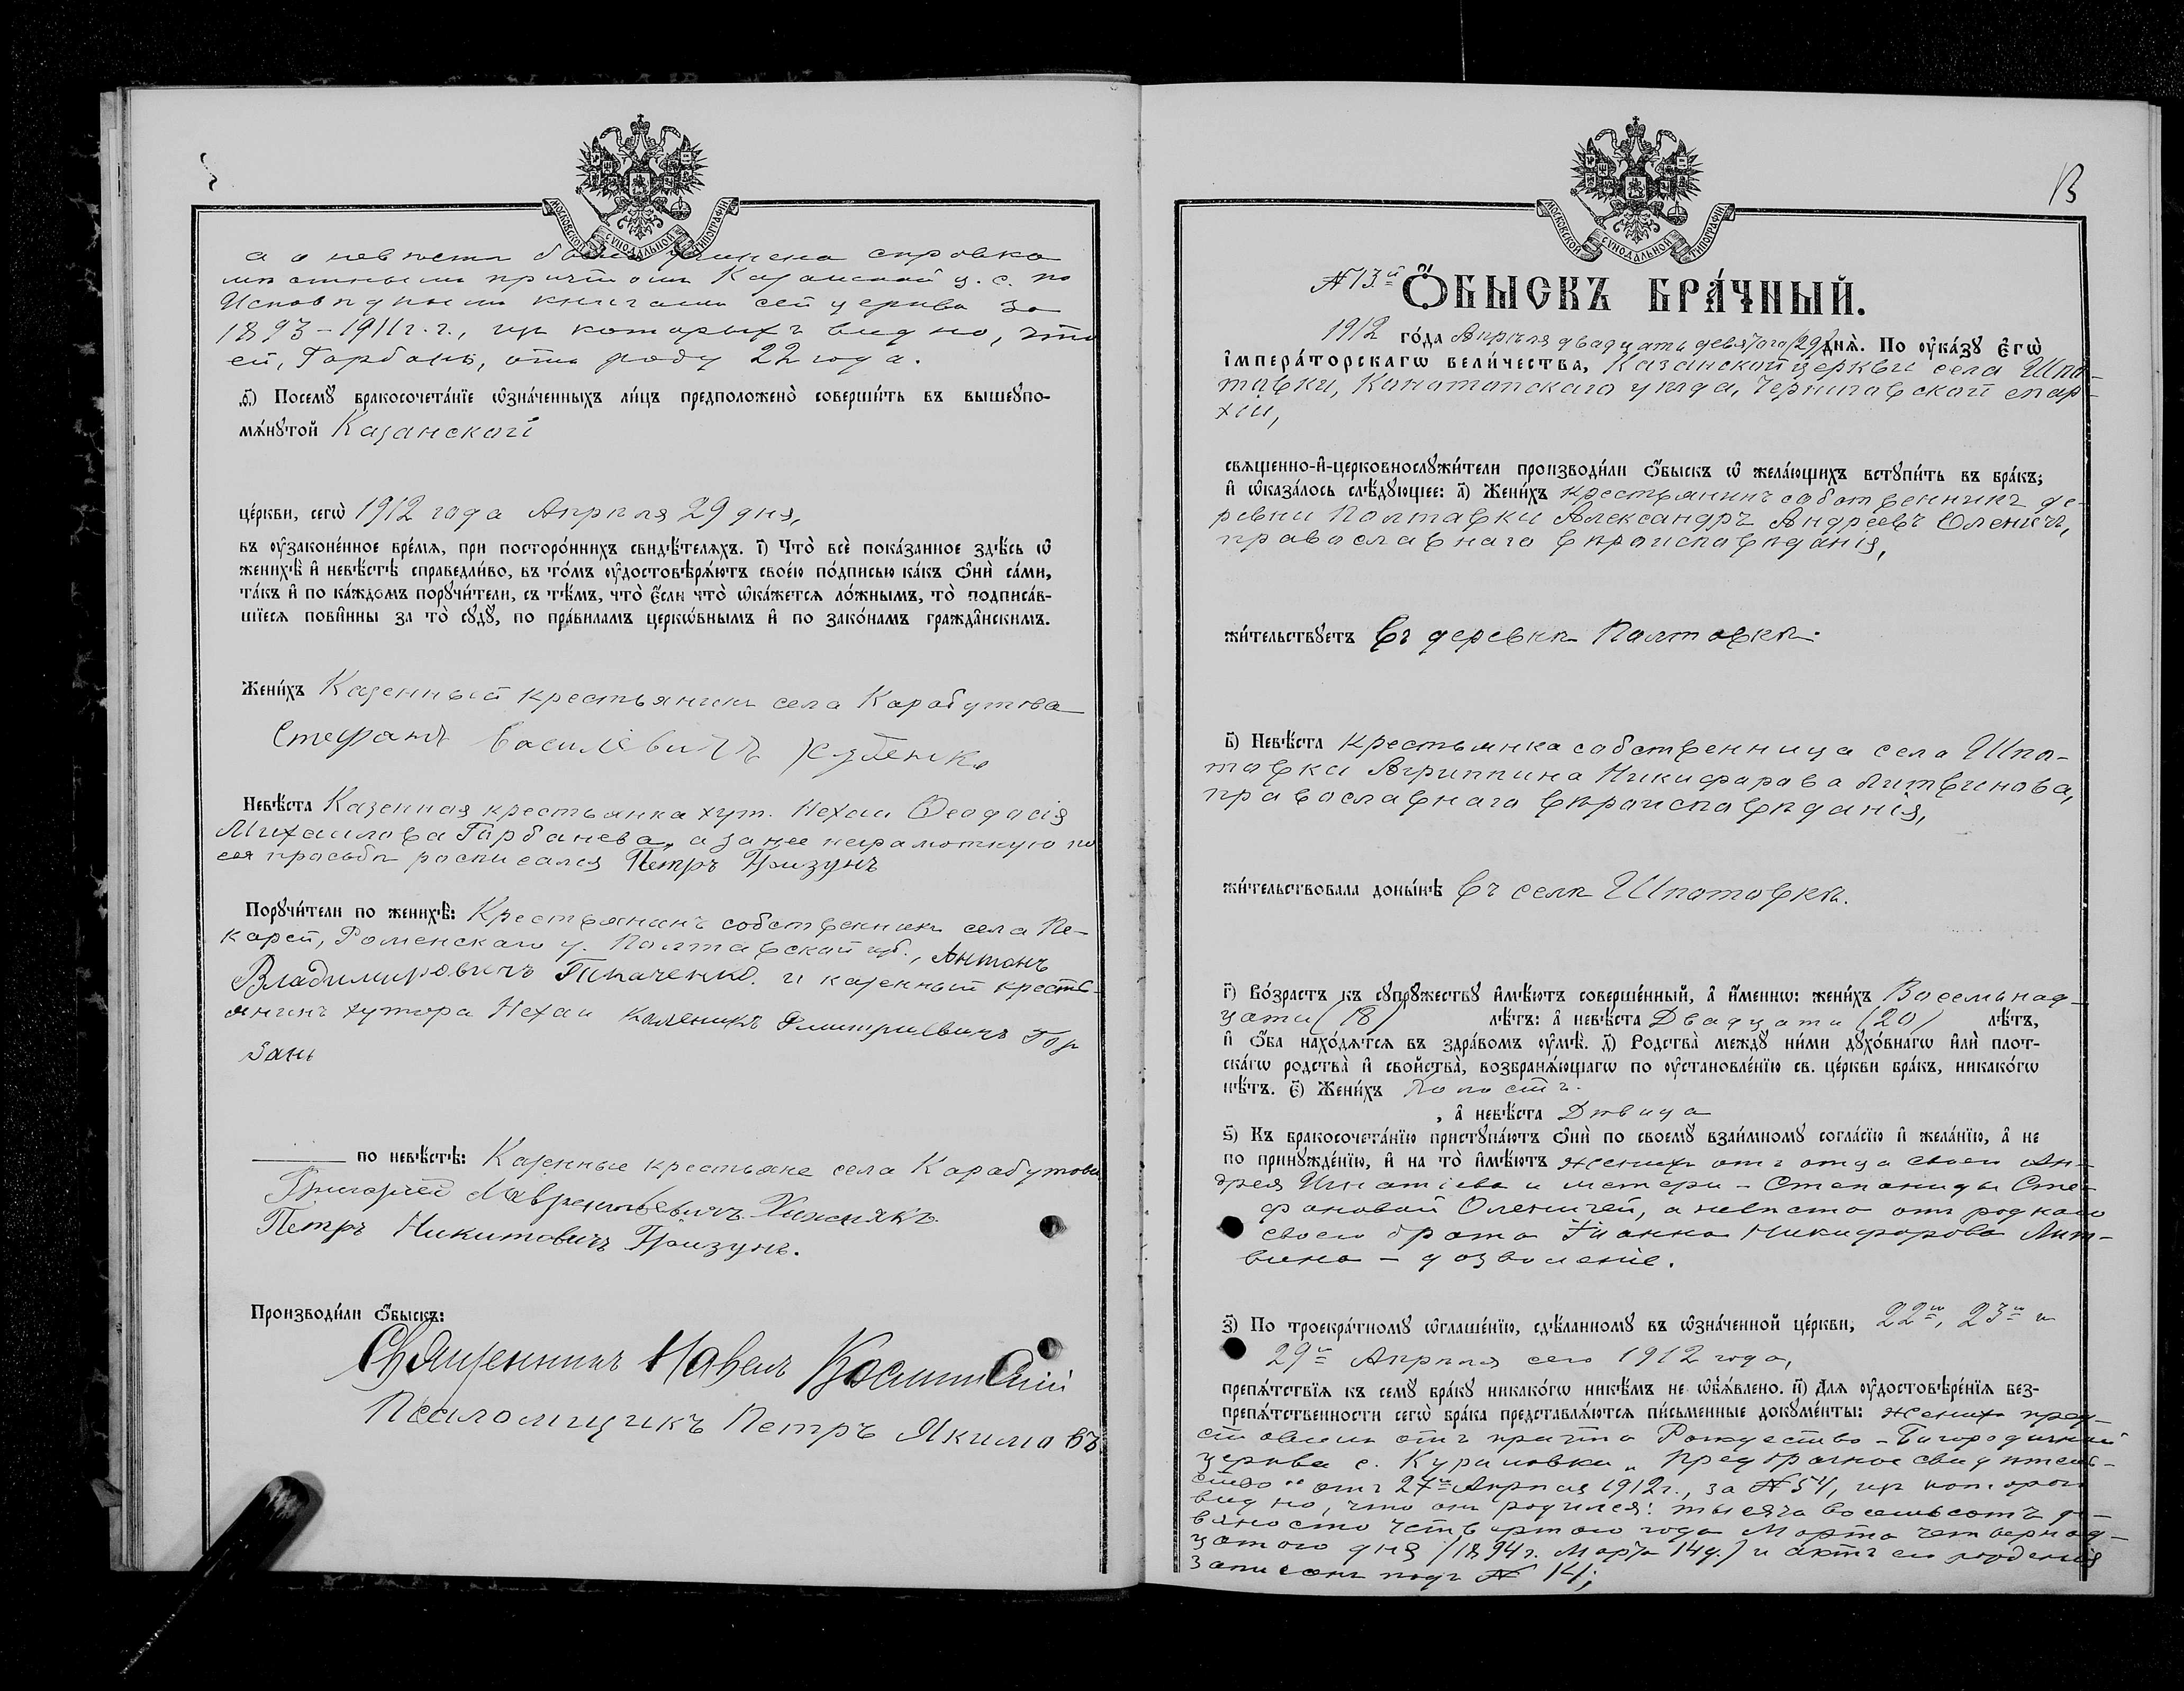 МОСКОВСКОЙ СѴНОДАЛЬНОЙ ТИПОГРАФІИ
а о невѣстѣ была учинена справка
мѣстнымъ причтомъ Казанской ц. с. по
Исповѣднымъ книгамъ сей церкви за
1893-1911 г.г., изъ которыхъ видно, что
ей, Горбань, отъ роду 22 года.
д҃і) Посемꙋ̀ бракосочета́нїе ѡ҆зна́ченныхъ ли́цъ предположено̀ соверши́ть въ вышеꙋпо-
мѧ́нꙋтой Казанской
це́ркви, сегѡ̀ 1912 года Апрѣля 29 дня,
въ ѹ҆зако́ненное вре́мѧ, при посторо́ннихъ свидѣ́телѧхъ. і҃) Что̀ всѐ пока́занное здѣ́сь ѡ҆
женихѣ̀ и҆ невѣ́стѣ справедли́во, въ то́мъ ѹ҆достовѣрѧ́ютъ свое́ю по́дписью ка́къ ѻ҆нѝ са́ми,
та́къ и҆ по ка́ждомъ порꙋчи́тели, съ тѣ́мъ, что̀ є҆́сли что̀ ѡ҆ка́жетсѧ ло́жнымъ, то̀ подписа́в-
шїесѧ пови́нны за то̀ сꙋдꙋ̀, по пра́виламъ церкѡ́внымъ и҆ по зако́намъ гражда́нскимъ.
Жени́хъ Казенный крестьянинъ села Карабутова
Стефанъ Василіевичъ
Невѣ́ста Казенная крестьянка хут. Нехаи Ѳеодосія
Михаилова Горбанева, а за нее неграмотную по
ея просьбѣ росписался Петръ Гризунъ
Порꙋчи́тели по женихѣ̀: Крестьянинъ собственникъ села Пе-
карей, Роменскаго у. Полтавской губ., Антонъ
Владимировичъ Ткаченко. и казенный кресть-
янинъ хутора Нехаи Дмитриевичъ Гор
бань
по невѣ́стѣ: Казенные крестьяне села Карабутова
Григорій Лаврентьевичъ Хижнякъ.
Петръ Никитовичъ Гризунъ.
Производи́ли ѻ҆́быскъ:
Священникъ Павелъ
Псаломщикъ Петръ Якимовъ
МОСКОВСКОЙ СѴНОДАЛЬНОЙ ТИПОГРАФІИ
13
№ 13й Ѻ҆́БЫСКЪ БРА́ЧНЫЙ.
1912 го́да Апрѣля двадцать девятого /29/ днѧ̀. По ѹ҆ка́зꙋ Є҆гѡ̀
І҆мпера́торскагѡ вели́чества, Казанской церкви села Шпо-
товки, Конотопскаго уѣзда, Черниговской епар-
хіи,
свѧщенно-и҆-церковнослꙋжи́тели производи́ли ѻ҆́быскъ ѡ҆ жела́ющихъ встꙋпи́ть въ бра́къ;
и҆ ѡ҆каза́лось слѣ́дꙋющее: а҃) Жени́хъ крестьянинъ собственникъ де-
ревни Полтавки Александръ Андреевъ Оленичъ,
православнаго вѣроисповѣданія,
жи́тельствꙋетъ въ деревнѣ Полтавкѣ.
в҃) Невѣ́ста крестьянка собственница села Шпо-
товки Агриппина Никифорова Литвинова,
православнаго вѣроисповѣданія,
жи́тельствовала доны́нѣ въ селѣ Шпотовкѣ.
г҃) Во́зрастъ къ сꙋпрꙋ́жествꙋ и҆мѣ́ютъ соверше́нный, а҆ и҆́меннѡ: жени́хъ Восемьнад-
цати /18/ лѣ́тъ: а҆ невѣ́ста Двадцати /20/ лѣ́тъ,
и҆ ѻ҆́ба нахо́дѧтсѧ въ здра́вомъ ѹ҆мѣ̀. д҃) Родства̀ междꙋ ни́ми дꙋхо́внагѡ и҆лѝ плот-
ска́гѡ родства̀ и҆ свойства̀, возбранѧ́ющагѡ по ѹ҆становле́нїю св. це́ркви бра́къ, никако́гѡ
нѣ́тъ. є҃) Жени́хъ Холостъ.
, а҆ невѣ́ста Дѣвица
ѕ҃) Къ бракосочета́нїю пристꙋпа́ютъ ѻ҆нѝ по своемꙋ̀ взаи́мномꙋ согла́сїю и҆ жела́нїю, а҆ не
по принꙋжде́нїю, и҆ на то̀ и҆мѣ́ютъ женихъ отъ отца своего Ан-
дрея Игнатіева и матери - Степаниды Сте-
фановой Оленичей, а невѣста отъ родного
своего брата Іоанна Никифорова Лит-
вина - дозволеніе.
з҃) По троекра́тномꙋ ѡ҆глаше́нїю, сдѣ́ланномꙋ въ ѡ҆зна́ченной це́ркви, 22го, 23го и
29го Апрѣля сего 1912 года,
препѧ́тствїѧ къ семꙋ̀ бра́кꙋ никако́гѡ никѣ́мъ не ѡ҆б̾ѧ́влено. и҃) Длѧ ѹ҆достовѣре́нїѧ без-
препѧ́тственности сегѡ̀ бра́ка представлѧ́ютсѧ пи́сьменные докꙋме́нты: женихъ пред-
ставилъ отъ причта Рождество-Богородичной
церкви с. Куриловки „Предбрачное свидѣтель-
ство" отъ 27го Апрѣля 1912 г., за № 54, изъ котораго
видно, что онъ родился: тысяча восемьсотъ де-
вяносто четвертого года Марта четвернад-
цатого дня /1894 г. Марта 14 д./ и актъ его рожденія
записанъ подъ № 14;